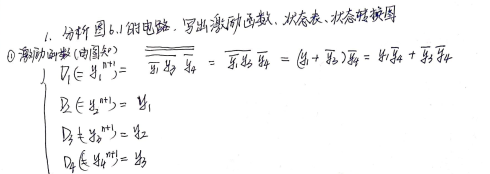 1. 分析图6.1的电路, 写出激励函数、状态表、状态转换图
① 激励函数(由图知)
D₁(= y₁ⁿ⁺¹) = \overline{\overline{\overline{y₁} y₃} \overline{y₄}} = \overline{\overline{y₁} y₃} \overline{y₄} = (y₁ + \overline{y₃}) \overline{y₄} = y₁\overline{y₄} + \overline{y₃} \overline{y₄}
D₂(= y₂ⁿ⁺¹) = y₁
D₃(= y₃ⁿ⁺¹) = y₂
D₄(= y₄ⁿ⁺¹) = y₃